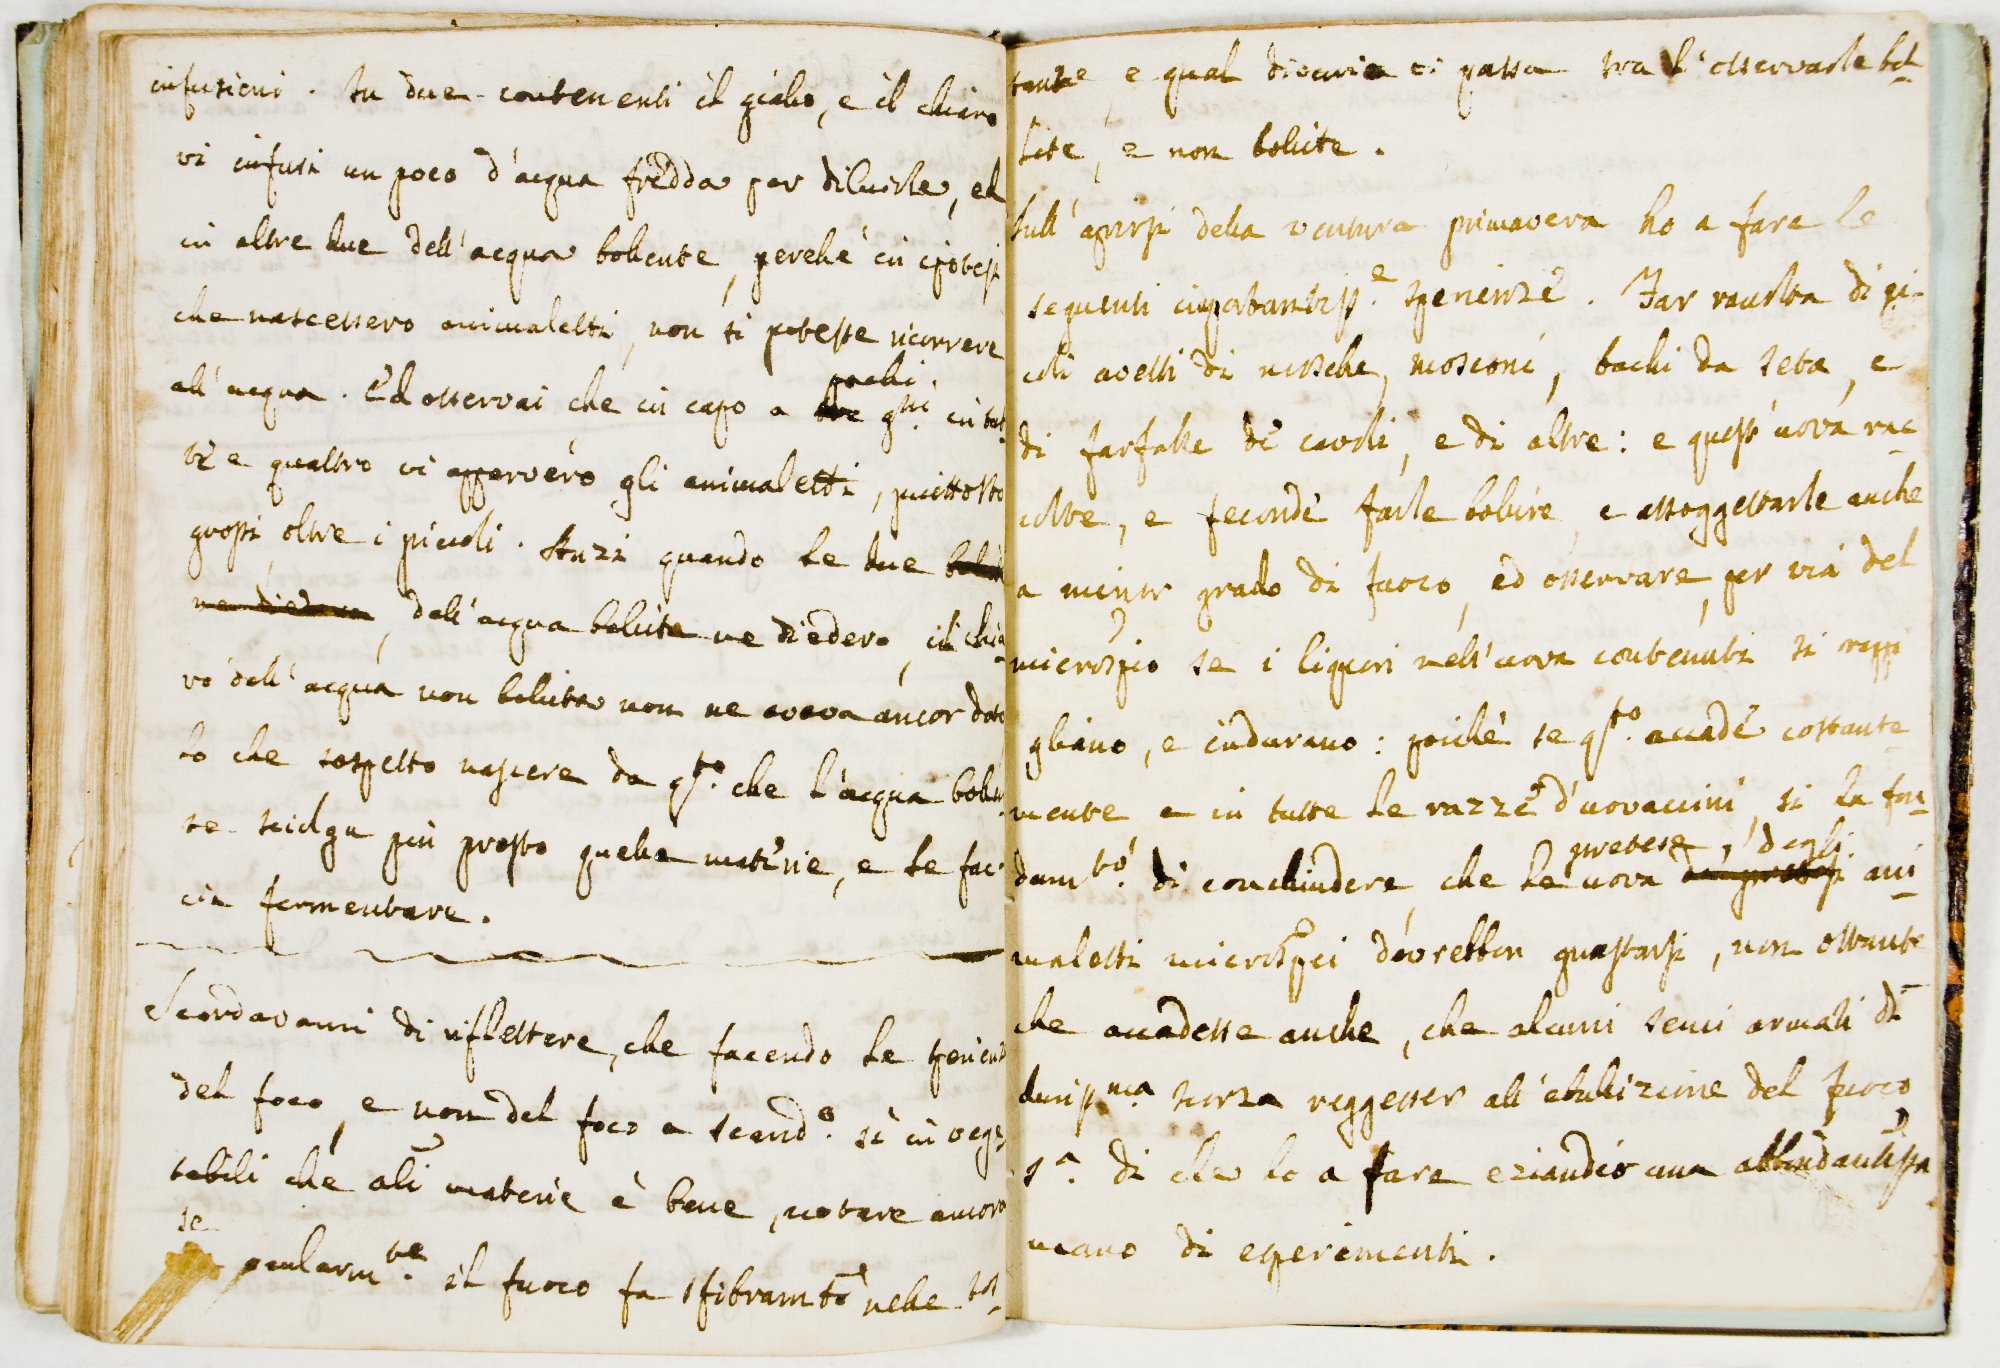 infusioni. In due contenenti il giallo, e il chiaro
vi infusi un poco d'acqua fredda per diluirle, ed
in altre due dell'acqua bollente, perchè in ipotesi
che nascessero animaletti, non si potesse ricorrere
all'acqua. Ed osservai che in capo a pochi gni. in tut-
te e quattro vi apparvero gli animaletti, piuttosto
grossi, oltre i piccoli. Anzi quando le due
ne diedero, dell'acqua bollita ne diedero, il chia-
ro dell'acqua non bollita non ne aveva ancor dato
lo che sospetto nascere da qsto. che l'acqua bollen-
te sciolga più presto quelle materie, e le fac-
cia fermentare.
Scordavami di riflettere, che facendo le sperienze
del foco, e non del foco a scando. sì in vege-
tabili che ali materie è bene, notare ancora
se pcularmte. il fuoco fa sfibramto nelle sos-
tanze, e qual divario ci passa tra l'osservarle bol-
lite, e non bollite.
Sull'aprirsi della ventura primavera ho a fare le
seguenti importantisse. sperienze. Far raccolta di pi-
coli ovetti di mosche, mosconi, bachi da seta, e
di farfalle de' cavoli, e di altre: e quest'uova rac-
colte, e feconde farle bollire, e assoggettarle anche
a minor grado di fuoco, ed osservare per via del
microscopio se i liquori nell'uova contenuti si rappi-
gliano, e indurano: poichè se qsto. accade costante-
mente e in tutte le razze d'uovaccini, si ha fon-
damto. di conchiudere, che le uova pretese, degli ani-
maletti microscopici dovrebbon guastarsi, non ostante
che accadesse anche, che alcuni semi armati di
durissma scorza reggesser all'ebullizione del fuoco
sa. di che ho a fare eziandio una abbondantissa.
mano di esperimenti.